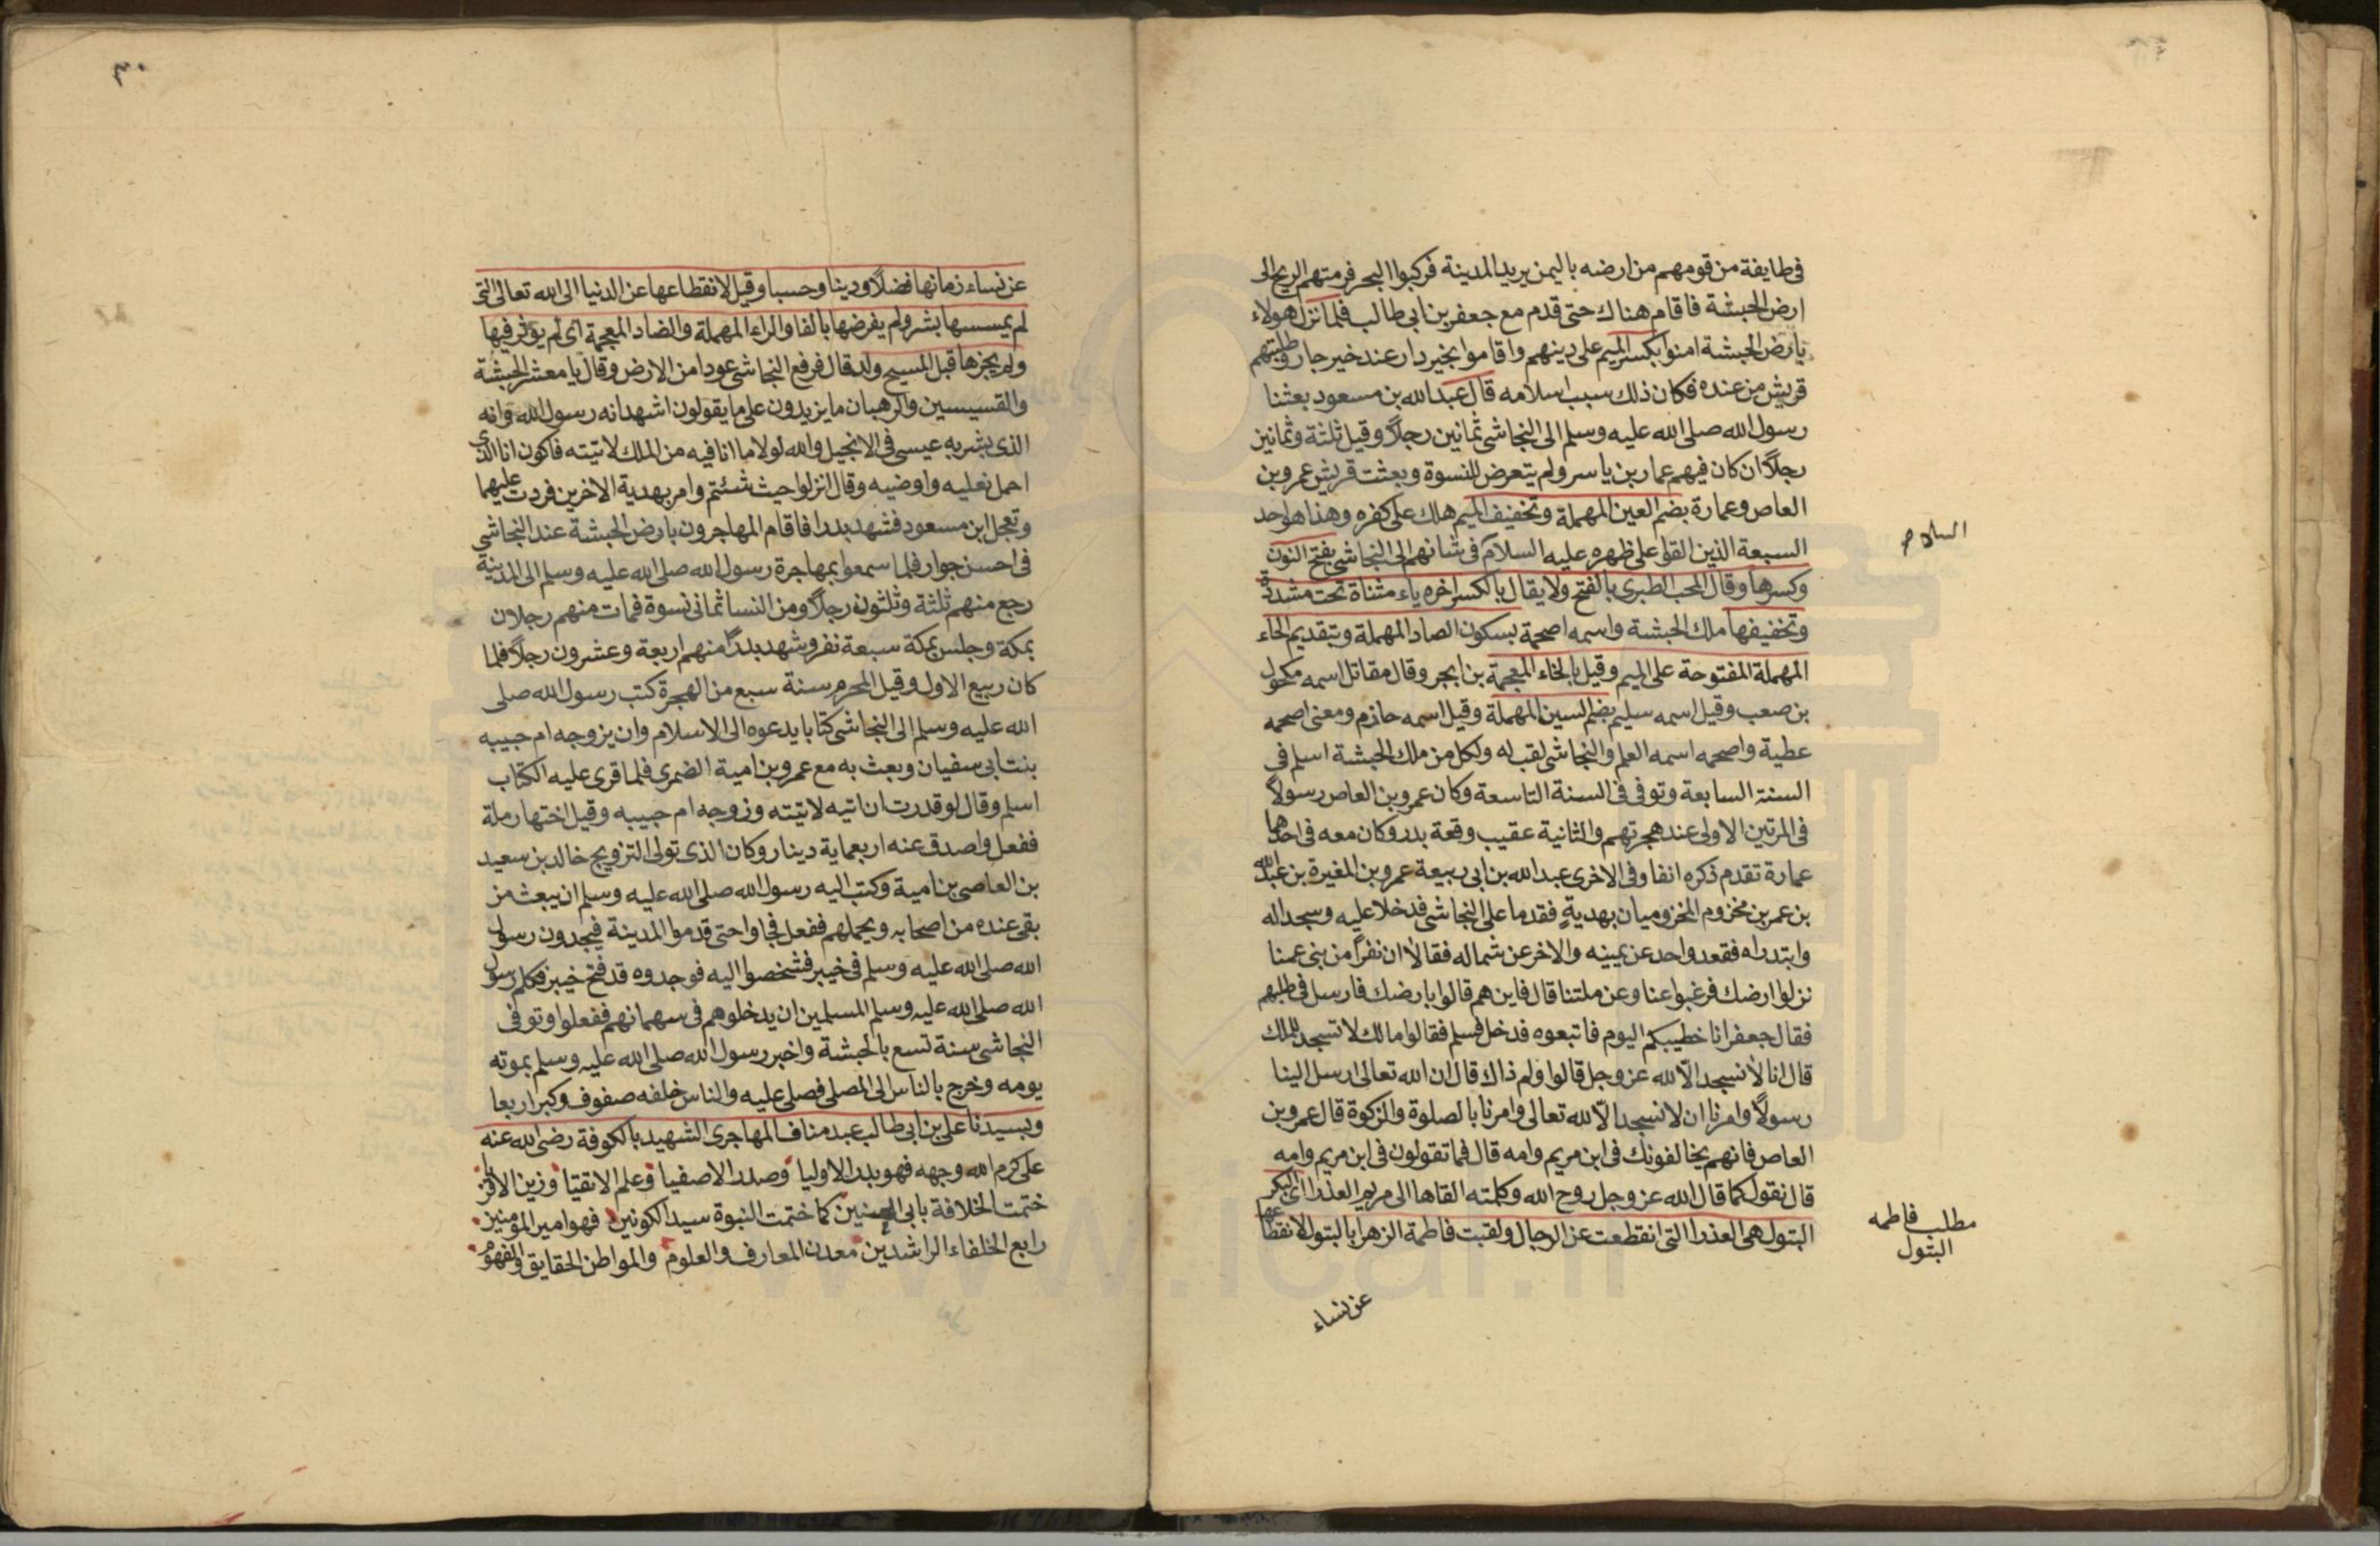 في طايفة من قومهم من ارضه باليمن يريد المدينة فركبوا البحر فرمتهم الريح الى
ارض الحبشة فاقام هناك حتى قدم مع جعفر بن ابي طالب فلما نزل هولاء
بارض الحبشة امنوا بكسر الميم على دينهم واقاموا بخير دار عند خير جار وطلبتهم
قريش من عنده فكان ذلك سبب اسلامه قال عبد الله بن مسعود بعثنا
رسول الله صلى الله عليه وسلم الى النجاشي ثمانين رجلاً وقيل ثلثة وثمانين
رجلاً ان كان فيهم عمار بن ياسر ولم يتعرض للنسوة وبعثت قريش عمرو بن
العاص وعمارة بضم العين المهملة وتخفيف الميم هلك على كفره وهذا هو احد
السبعة الذين القوا على ظهره عليه السلام في شانهم الى النجاشي بفتح النون
وكسرها وقال المحب الطبري بالفتح ولا يقال بالكسر اخره ياء مثناة تحت مشددة
وتخفيفها ملك الحبشة واسمه اصحمة بسكون الصاد المهملة وبتقديم الحاء
المهملة المفتوحة على الميم وقيل بالخاء المعجمة بن ابجر وقال مقاتل اسمه مكحول
بن صعب وقيل اسمه سليم بضم السين المهملة وقيل اسمه حازم ومعنى اصحمه
عطية واصحمه اسمه العلم والنجاشي لقب له ولكل من ملك الحبشة اسلم في
السنة السابعة وتوفي في السنة التاسعة وكان عمرو بن العاص رسولاً
في المرتين الاولى عند هجرتهم والثانية عقيب وقعة بدر وكان معه في احدهما
عمارة تقدم ذكره انفا وفي الاخرى عبد الله بن ابي ربيعة عمرو بن المغيرة بن عبد الله
بن عمر بن مخزوم المخزوميان بهديةٍ فقدما على النجاشي فدخلا عليه وسجدا له
وابتدراه فقعد واحد عن يمينه والاخر عن شماله فقالا ان نفراً من بني عمنا
نزلوا ارضك فرغبوا عنا وعن ملتنا قال فاين هم قالوا بارضك فارسل في طلبهم
فقال جعفر انا خطيبكم اليوم فاتبعوه فدخل فسلم فقالوا مالك لا تسجد للملك
قال انا لا نسجد الا لله عز وجل قالوا ولم ذاك قال ان الله تعالى ارسل الينا
رسولاً وامرنا ان لا نسجد الا لله تعالى وامرنا بالصلوة والزكوة قال عمرو بن
العاص فانهم يخالفونك في ابن مريم وامه قال فما تقولون في ابن مريم وامه
قال نقول كما قال الله عز وجل روح الله وكلمته القاها الى مريم العذرا اي البكر
البتول هي العذرا التي انقطعت عن الرجال ولقبت فاطمة الزهرا بالبتول لانقطاعها
عن نساء
السلام
مطلب فاطمه
البتول
٣٠
عن نساء زمانها فضلاً ودينا وحسبا وقيل لانقطاعها عن الدنيا الى الله تعالى التي
لم يمسسها بشر ولم يفرضها بالفا والراء المهملة والضاد المعجمة اي لم يؤثر فيها
ولم يحزها قبل المسيح ولد قال فرفع النجاشي عودا من الارض وقال يا معشر الحبشة
والقسيسين والرهبان ما يزيدون على ما يقولون اشهد انه رسول الله وانه
الذي بشر به عيسى في الانجيل والله لولا ما انا فيه من الملك لاتيته فاكون انا الذي
احمل نعليه واوضيه وقال انزلوا حيث شئتم وامر بهدية الاخرين فردت عليهما
وتعجل ابن مسعود فشهد بدرا فاقام المهاجرون بارض الحبشة عند النجاشي
في احسن جوار فلما سمعوا بمهاجرة رسول الله صلى الله عليه وسلم الى المدينة
رجع منهم ثلثة وثلثون رجلاً ومن النسا ثماني نسوة فمات منهم رجلان
بمكة وحلس بمكة سبعة نفر وشهد بدرا منهم اربعة وعشرون رجلاً فلما
كان ربيع الاول وقيل المحرم سنة سبع من الهجرة كتب رسول الله صلى
الله عليه وسلم الى النجاشي كتابا يدعوه الى الاسلام وان يزوجه ام حبيبه
بنت ابي سفيان وبعث به مع عمرو بن امية الضمري فلما قرى عليه الكتاب
اسلم وقال لو قدرت ان اتيه لاتيته وزوجه ام حبيبه وقيل اختها رملة
ففعل واصدق عنه اربعماية دينار وكان الذي تولى التزويج خالد بن سعيد
بن العاصي بن امية وكتب اليه رسول الله صلى الله عليه وسلم ان يبعث من
بقي عنده من اصحابه ويحملهم ففعل فجاوا حتى قدموا المدينة فيجدون رسول
الله صلى الله عليه وسلم في خيبر فشخصوا اليه فوجدوه قد فتح خيبر فكلم رسول
الله صلى الله عليه وسلم المسلمين ان يدخلوهم في سهمانهم ففعلوا وتوفي
النجاشي سنة تسع بالحبشة واخبر رسول الله صلى الله عليه وسلم بموته
يومه وخرج بالناس الى المصلى فصلى عليه والناس خلفه صفوف وكبر اربعا
وبسيدنا علي بن ابي طالب عبد مناف المهاجري الشهيد بالكوفة رضي الله عنه
على كرم الله وجهه فهو بدر الاوليا وصدر الاصفيا وعلم الاتقيا وزين
ختمت الخلافة بابي الحسنين كما ختمت النبوة سيد الكونين فهو امير المؤمنين
رابع الخلفاء الراشدين معدن المعارف والعلوم والمواطن الحقايق والفهوم
www.ical.ir